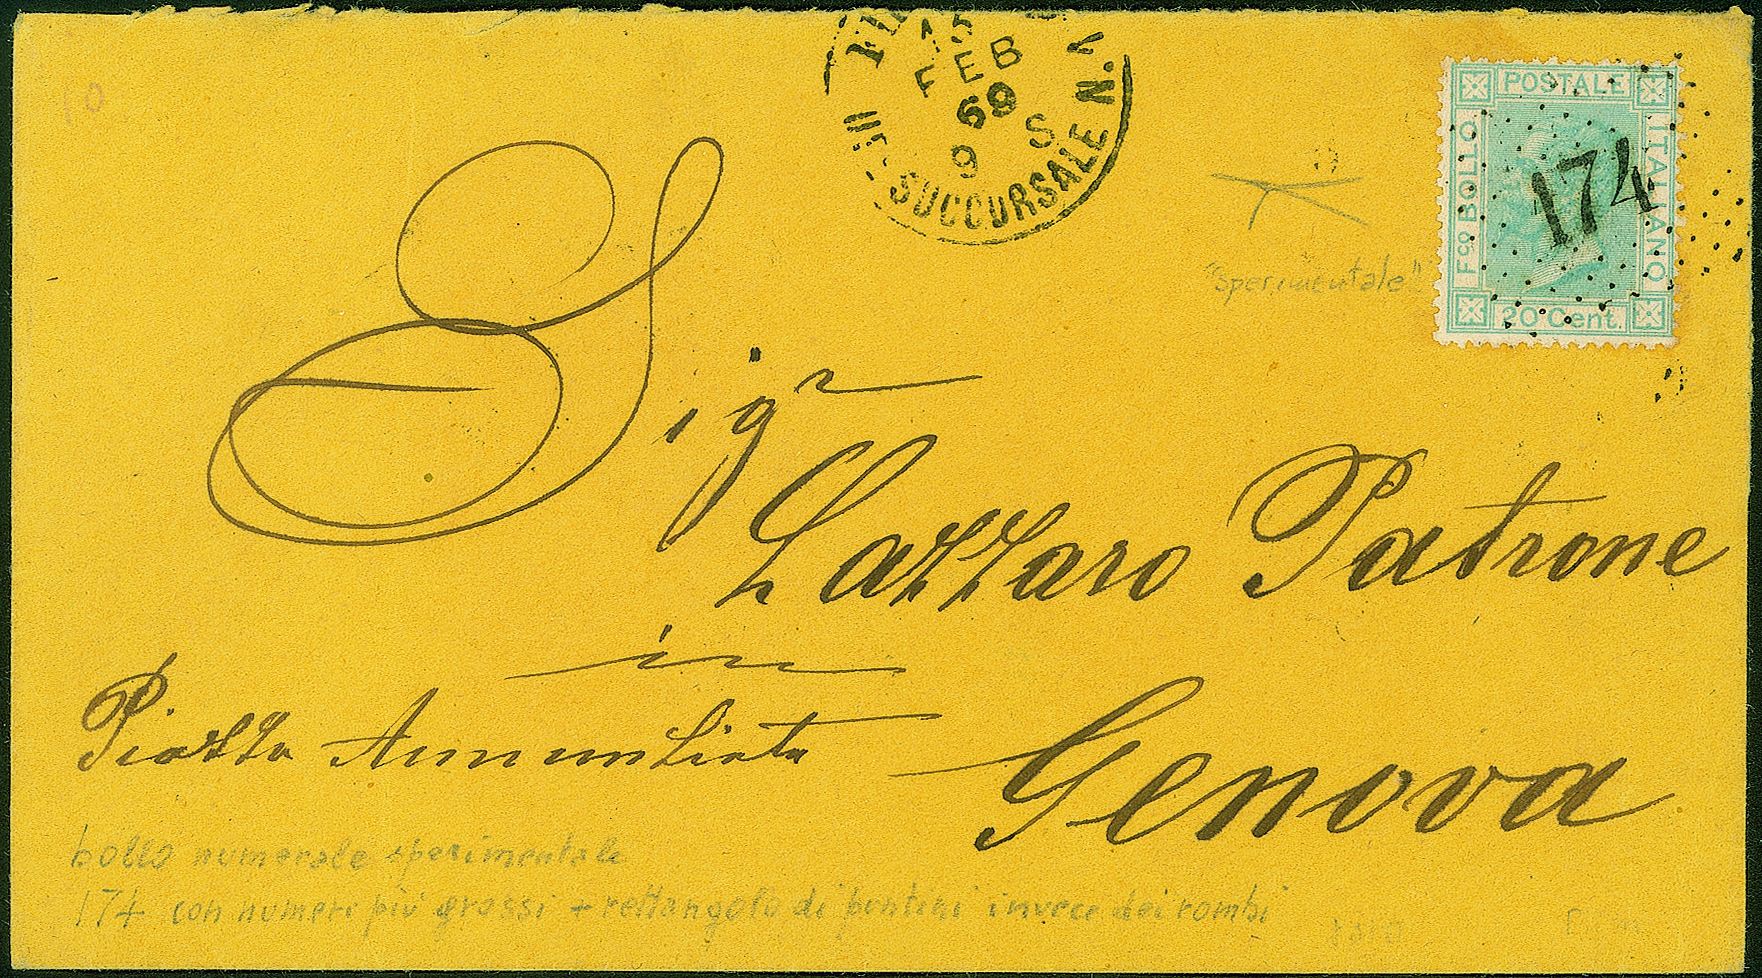 10
15
FEB
69
9 S
SUCCURSALE N. 1
POSTALE
Fco BOLLO
ITALIANO
20 Cent.
174
"sperimentale"
Sigr
Lazzaro Patrone
in
Piazza Annunziata
Genova
bollo numerale sperimentale
174 con numeri più grossi + rettangolo di puntini invece dei rombi